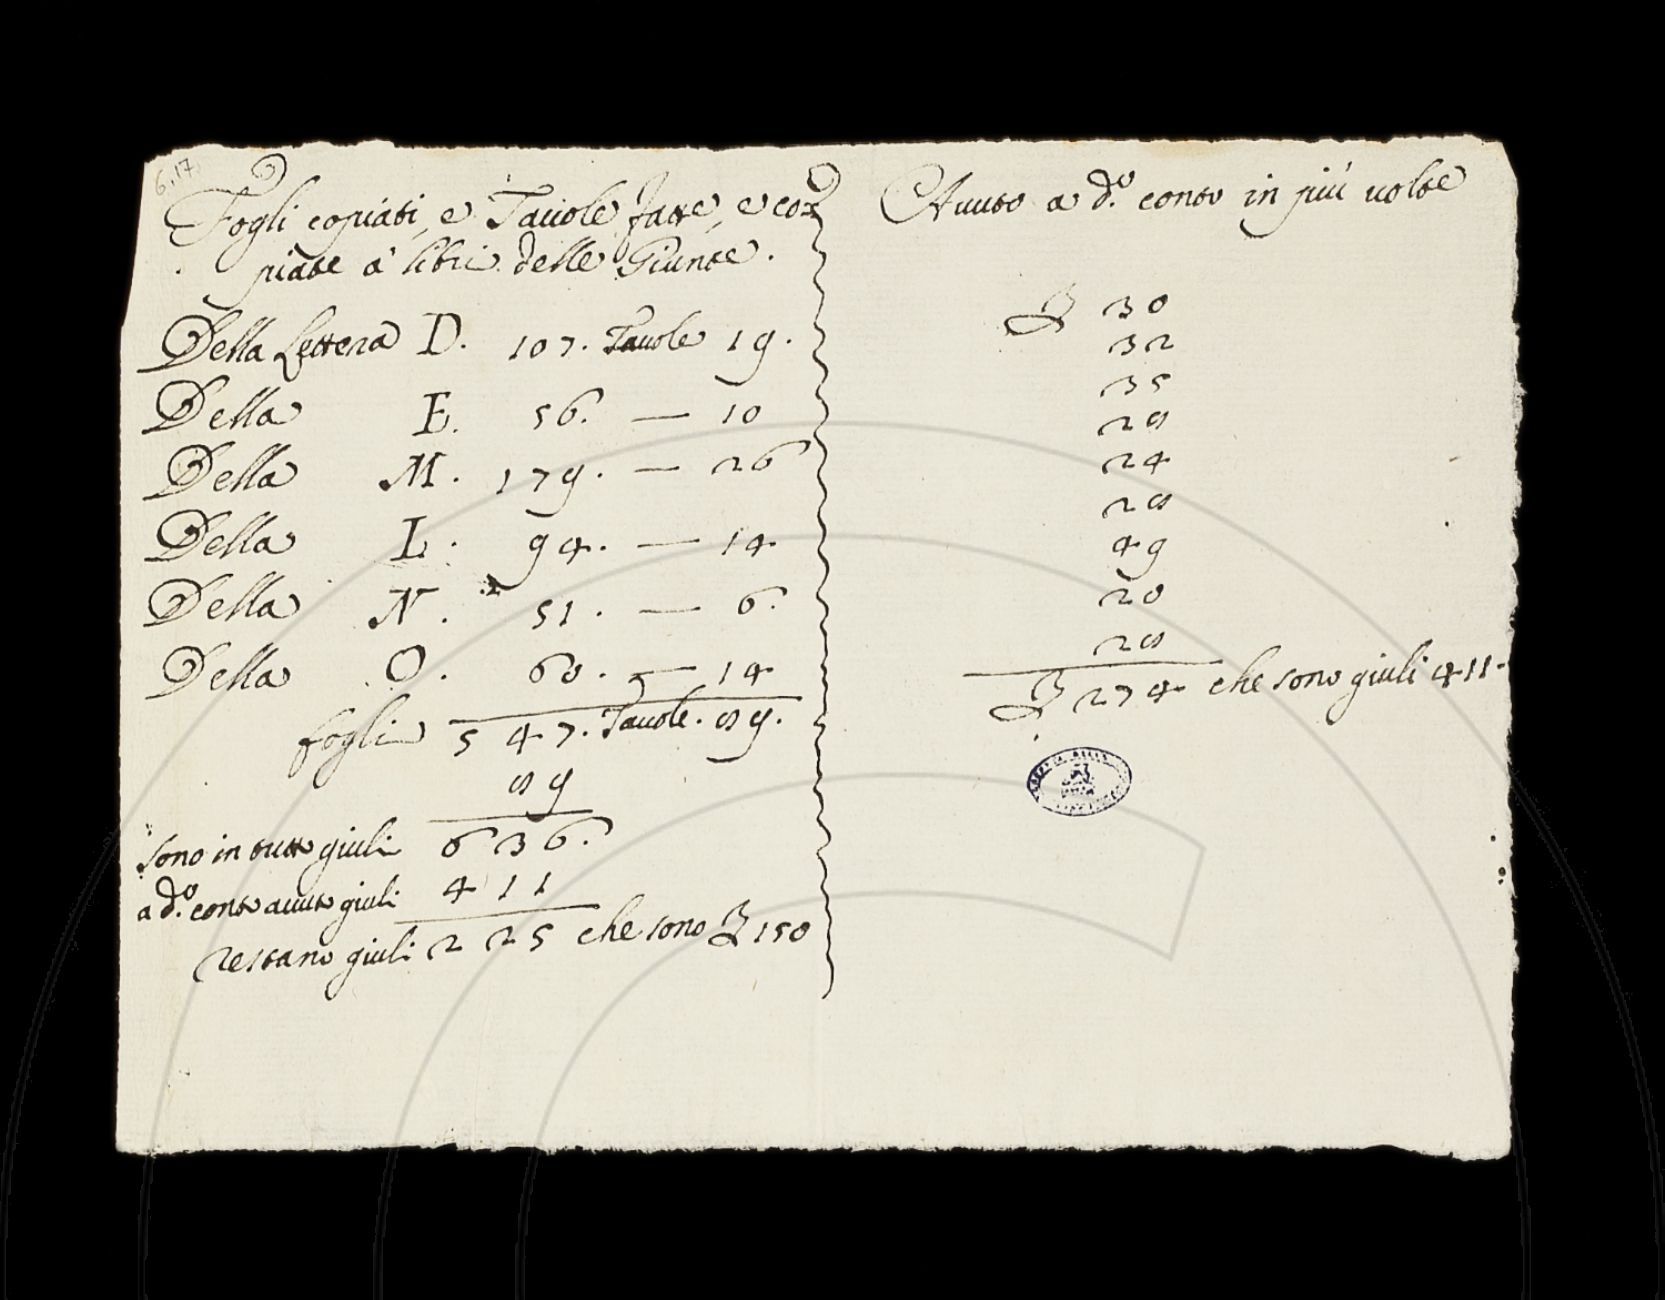 6.17
Fogli copiati, e Tavole fatte, e co=
piate a' libri delle Giunte.
Della Lettera D. 107. Tavole 19.
Della E. 56. — 10
Della M. 179. — 26
Della L. 94. — 14
Della N. 51. — 6.
Della O. 60. — 14
fogli 547. Tavole. 89.
89
sono in tutto giuli 636.
a d.o conto avuto giuli 411
restano giuli 225 che sono £ 150
Avuto a d.o conto in più volte
£ 30
32
35
28
24
28
49
20
28
£ 274 che sono giuli 411.